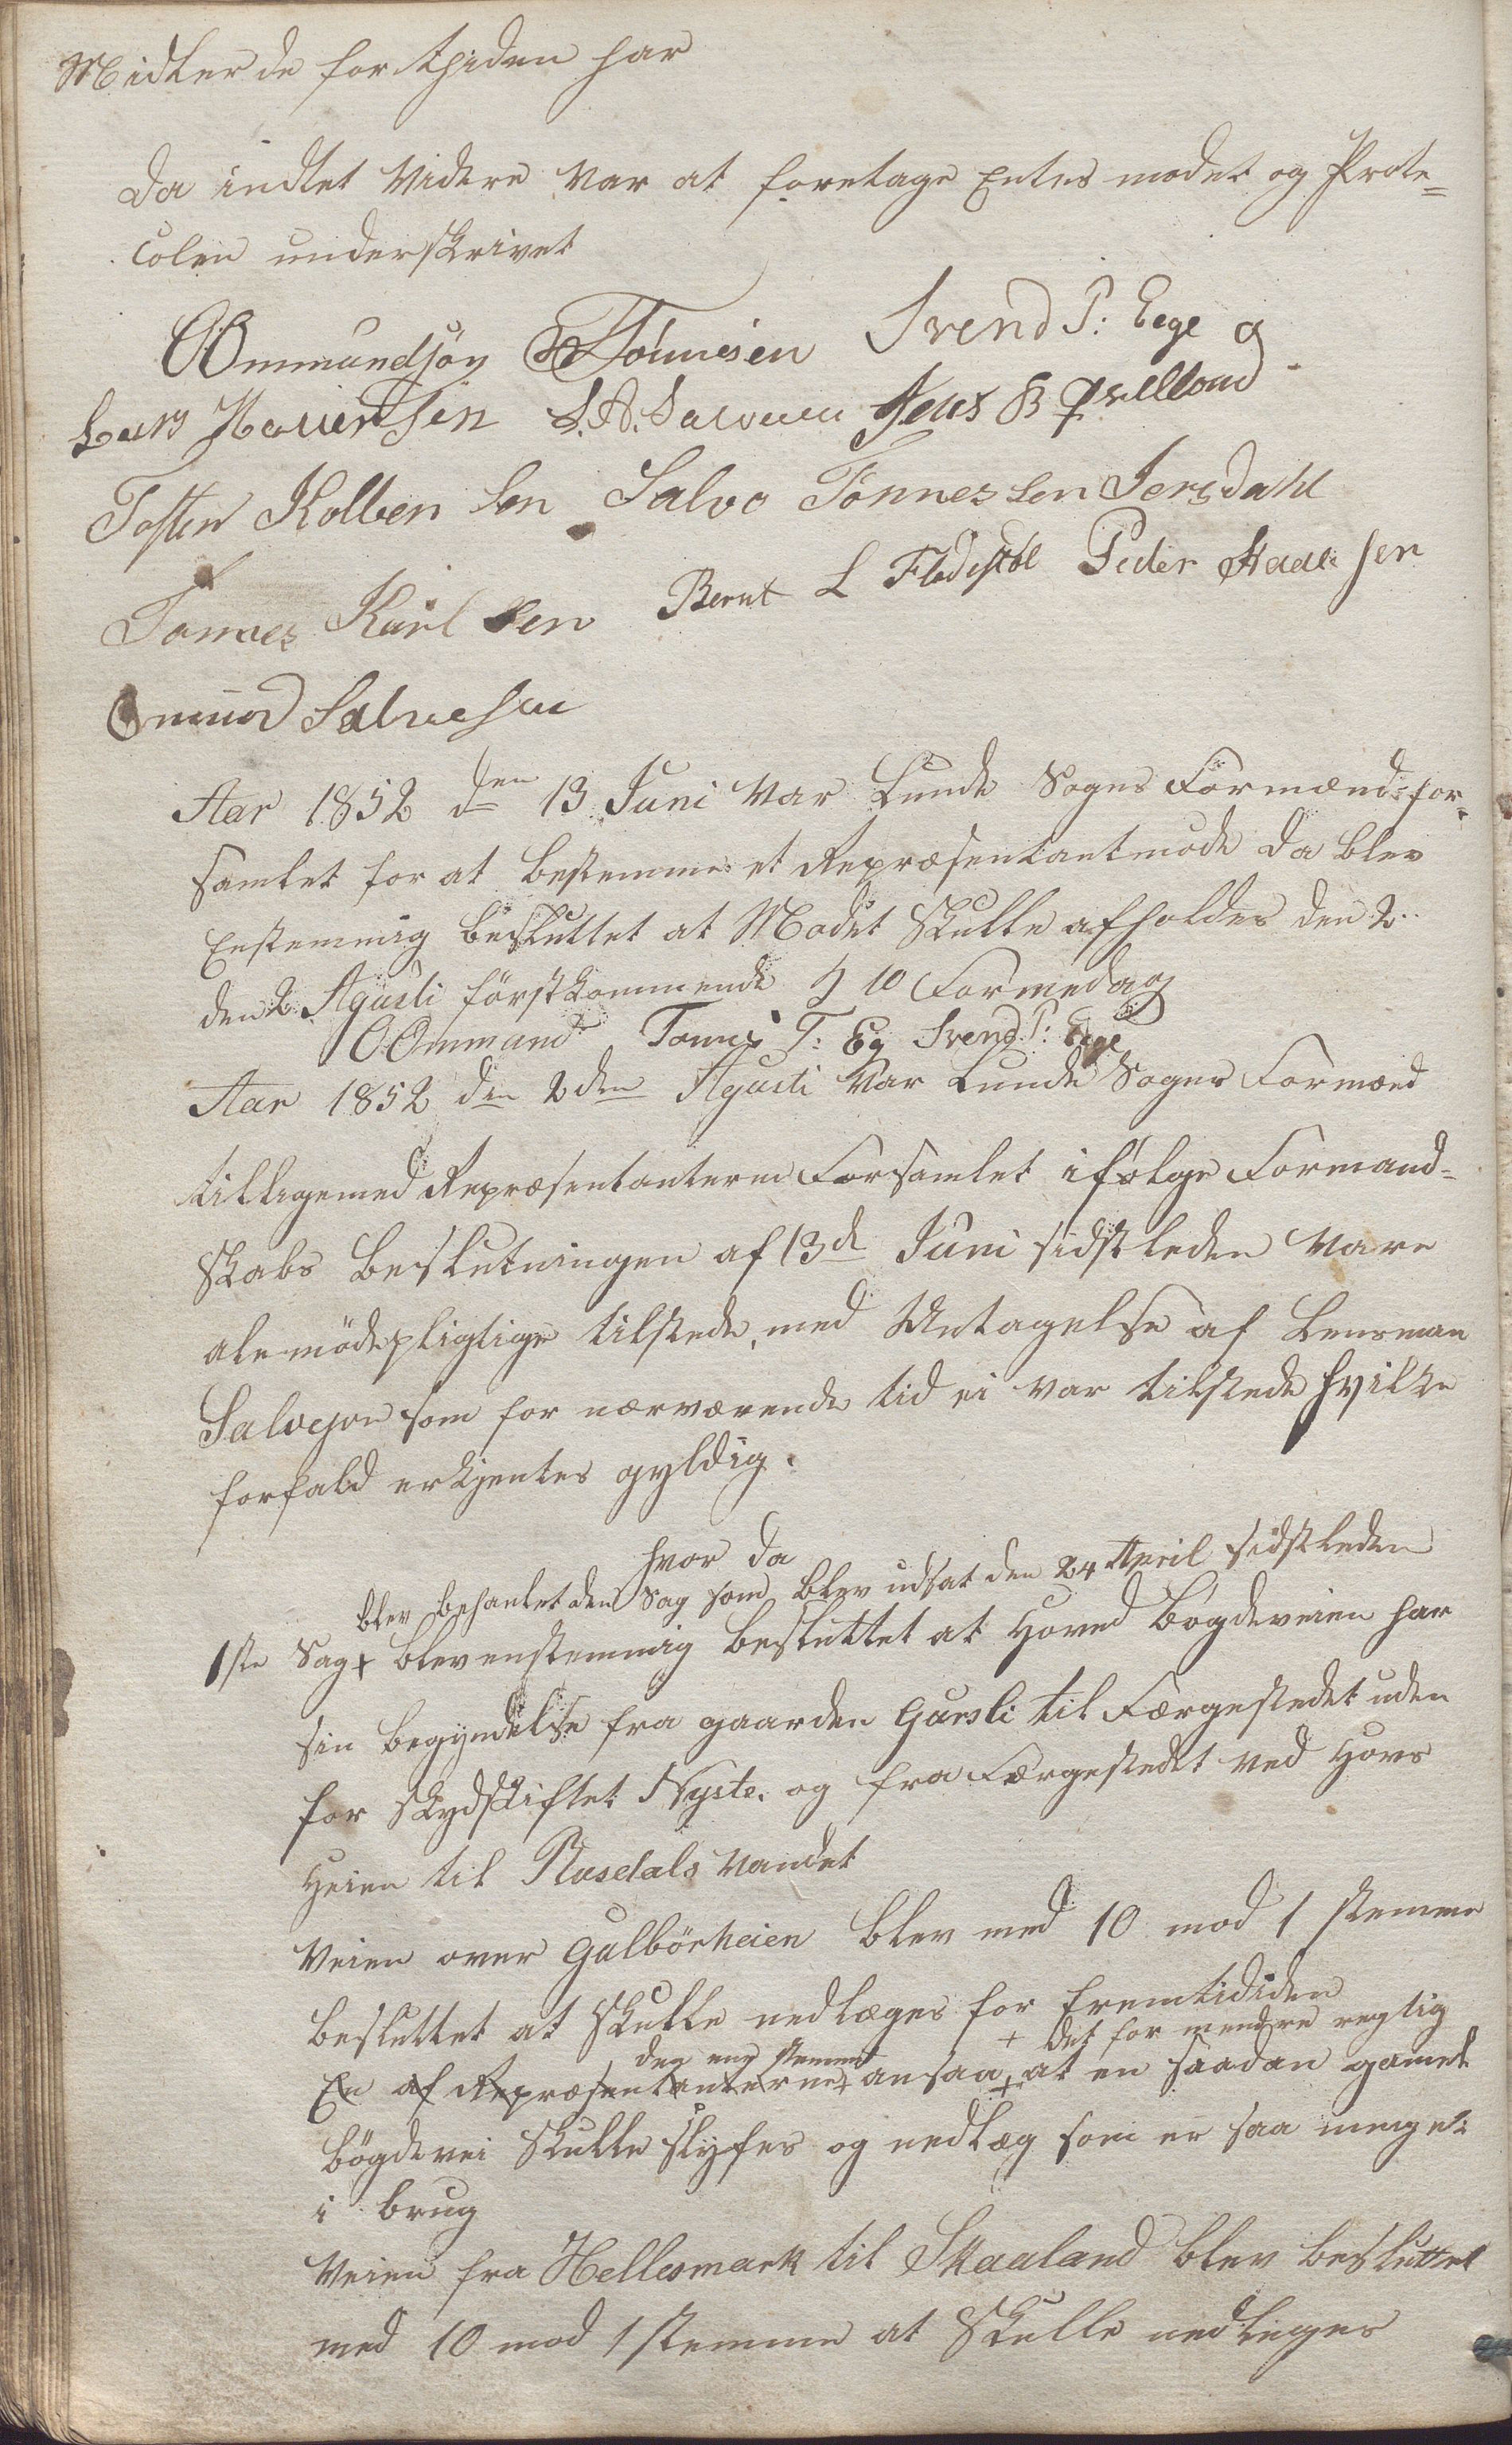 Midler de for thiden har
da indtet Videre Var at foretage Entes modet og Proto=
colen underskrivet
OOmmundsøn TTönnesen Svend P: Eege
Lars Hauensen S. A. Salvesen Jens B Qvelland
Tosten Kolben sen Salve Tönnes sen Jersdahl
Tonnes Karl sen Bernt L Fladstöl Peder Aadne sen
Omund Salvesen
Aar 1852 den 13 Juni Var Lunde Sogns Formænd for¬
samlet for at bestemme et Repræsentantmöde da blev
Enstemmig besluttet at Modet Skulle afholdes den 2
den 2 Agusti förstkommende Kl 10 Formedag
OOmmund Tonnes T: Eg Svend P: Eege
Aar 1852 den 2den Agusti Var Lunde Sogns Formænd
tilligemed Repræsentanterne Forsamlet ifølge Formand-
Skabs Beslutningen af 13de Juni sidstleden Vare
ale mödepligtige tilstede, med Untagelse af Lensman
Salvesen som for nærværende tid ei var tilstede hvilke
forfald erkjentes gyldig.
hvor da
blev behanlet den Sag som blev udsat den 24 April sidstleden
1ste Sag + blev enstemmig besluttet at Hoved Bögdeveien har
sin begyndelse fra gaarden Gursli til Færgestedet uden
for skydskiftet Nyste. og fra Færgestedet ved Hovs
Heien til Rusdals Vandet
Veien over Gulbörheien blev med 10 mod 1 stemme
besluttet at Skulle nedlæges for fremtididen
+ det for mendre regtig
den ene stemme
En af Repræsentanterne + ansaa + at en saadan gamel
bögdevei Skulle slyfes og nedlæg som er saa meget
i brug
Veien fra Hellesmark til Skaaland blev besluttet
med 10 mod 1 stemme at Skulle nedleges